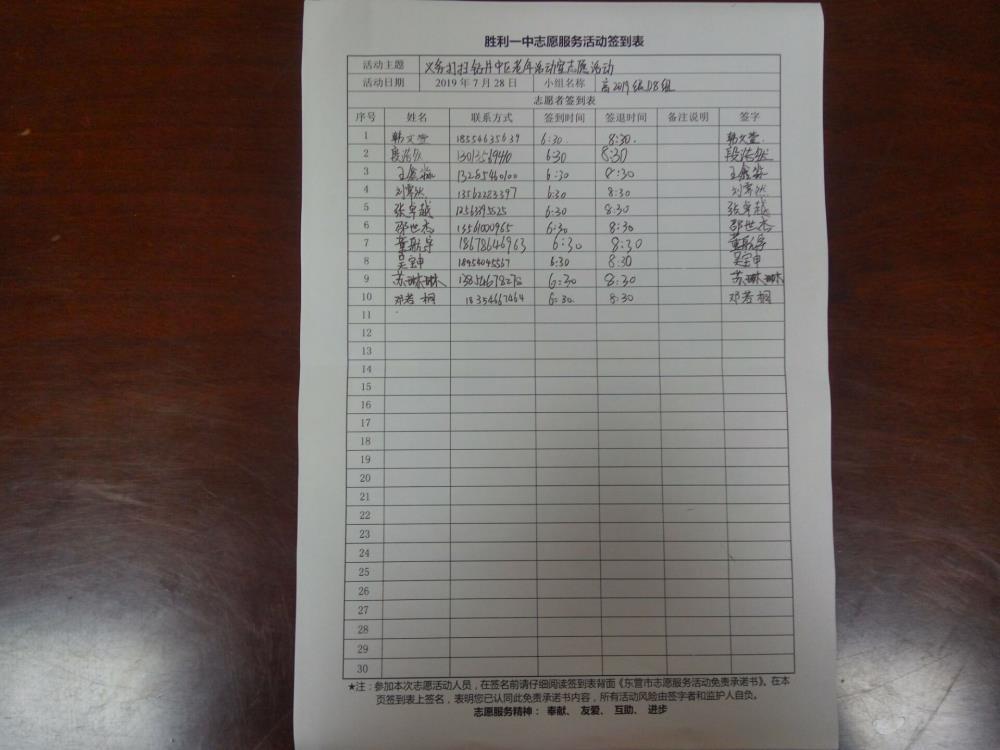 胜利一中志愿服务活动签到表
活动主题 义务打扫钻井中区老年活动室志愿活动
活动日期 2019年7月28日 小组名称 高2019级D8组
志愿者签到表
序号 姓名 联系方式 签到时间 签退时间 备注说明 签字
1 韩文萱 18554635639 6:30. 8:30. 韩文萱.
2 段浩然 6:30 8:30 段浩然
3 王鑫淼 13285460100 6:30 8:30 王鑫淼
4 刘霄然 13562283397 6:30 8:30 刘霄然
5 张卓越 6:30 8:30 张卓越
6 邵世杰 13561000965 6:30 8:30 邵世杰
7 董航宇 18678646963 6:30 8:30 董航宇
8 吴宝申 18954045567 6:30 8:30 吴宝申
9 苏琳琳 6:30 8:30 苏琳琳
10 邓若桐 18354667464 6:30. 8:30 邓若桐
11
12
13
14
15
16
17
18
19
20
21
22
23
24
25
26
27
28
29
30
★注：参加本次志愿活动人员，在签名前请仔细阅读签到表背面《东营市志愿服务活动免责承诺书》。在本
页签到表上签名，表明您已认同此免责承诺书内容，所有活动风险由签字者和监护人自负。
志愿服务精神： 奉献、 友爱、 互助、 进步